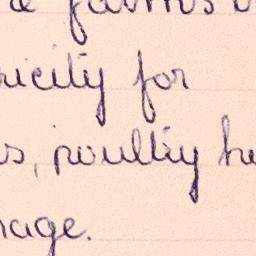 farms
ricity for
s, poultry he
nage.